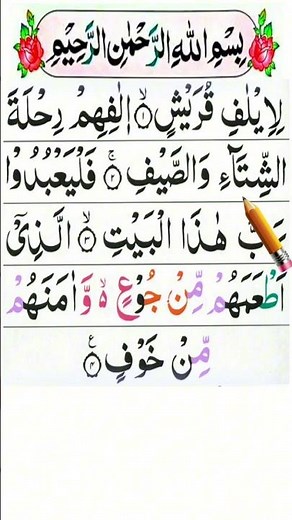 بِسْمِ اللهِ الرَّحْمٰنِ الرَّحِيْمِ
لِاِيْلٰفِ قُرَيْشٍ ۙ﴿۱﴾ اٖلٰفِهِمْ رِحْلَةَ
الشِّتَآءِ وَالصَّيْفِ ۚ﴿۲﴾ فَلْيَعْبُدُوْا
رَبَّ هٰذَا الْبَيْتِ ۙ﴿۳﴾ الَّذِيْۤ
اَطْعَمَهُمْ مِّنْ جُوْعٍ ۙ وَّاٰمَنَهُمْ
مِّنْ خَوْفٍ ﴿۴﴾ ع